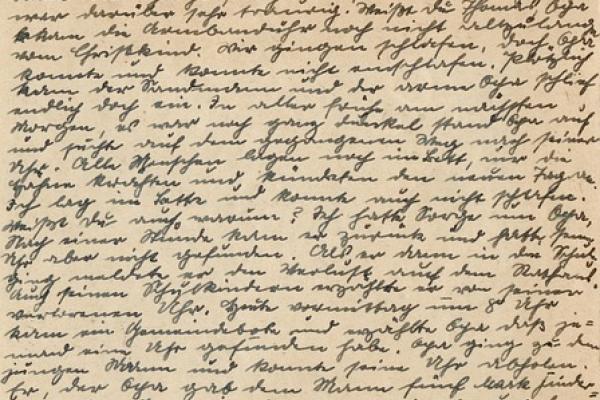 war darüber sehr traurig. Weißt Du Thomas, Opa
kam die Armbanduhr noch nicht allzulange
vom Christkind. Wir gingen schlafen, doch Opa
konnte und konnte nicht einschlafen. Plötzlich
kam der Sandmann und der arme Opa schlief
endlich doch ein. In aller Frühe am nächsten
Morgen, es war noch ganz dunkel stand Opa auf
und suchte auf dem gegangenen Weg nach seiner
Uhr. Alle Menschen lagen noch im Bett, nur die
Hähne krähten und kündeten den neuen Tag an.
Ich lag im Bette und konnte auch nicht schlafen.
Weißt Du auch warum? Ich hatte Sorge um Opa.
Nach einer Stunde kam er zurück und hatte seine
Uhr aber nicht gefunden. Als er dann in die Schule
ging meldete er den Verlust auf dem Rathaus.
Auch seinen Schulkindern erzählte er von seiner
verlorenen Uhr. Heute vormittag um 8 Uhr
kam ein Gemeindebote und erzählte Opa daß je-
mand eine Uhr gefunden habe. Opa ging zu dem
jungen Mann und konnte seine Uhr abholen.
Er, der Opa gab dem Mann fünf Mark Finder-